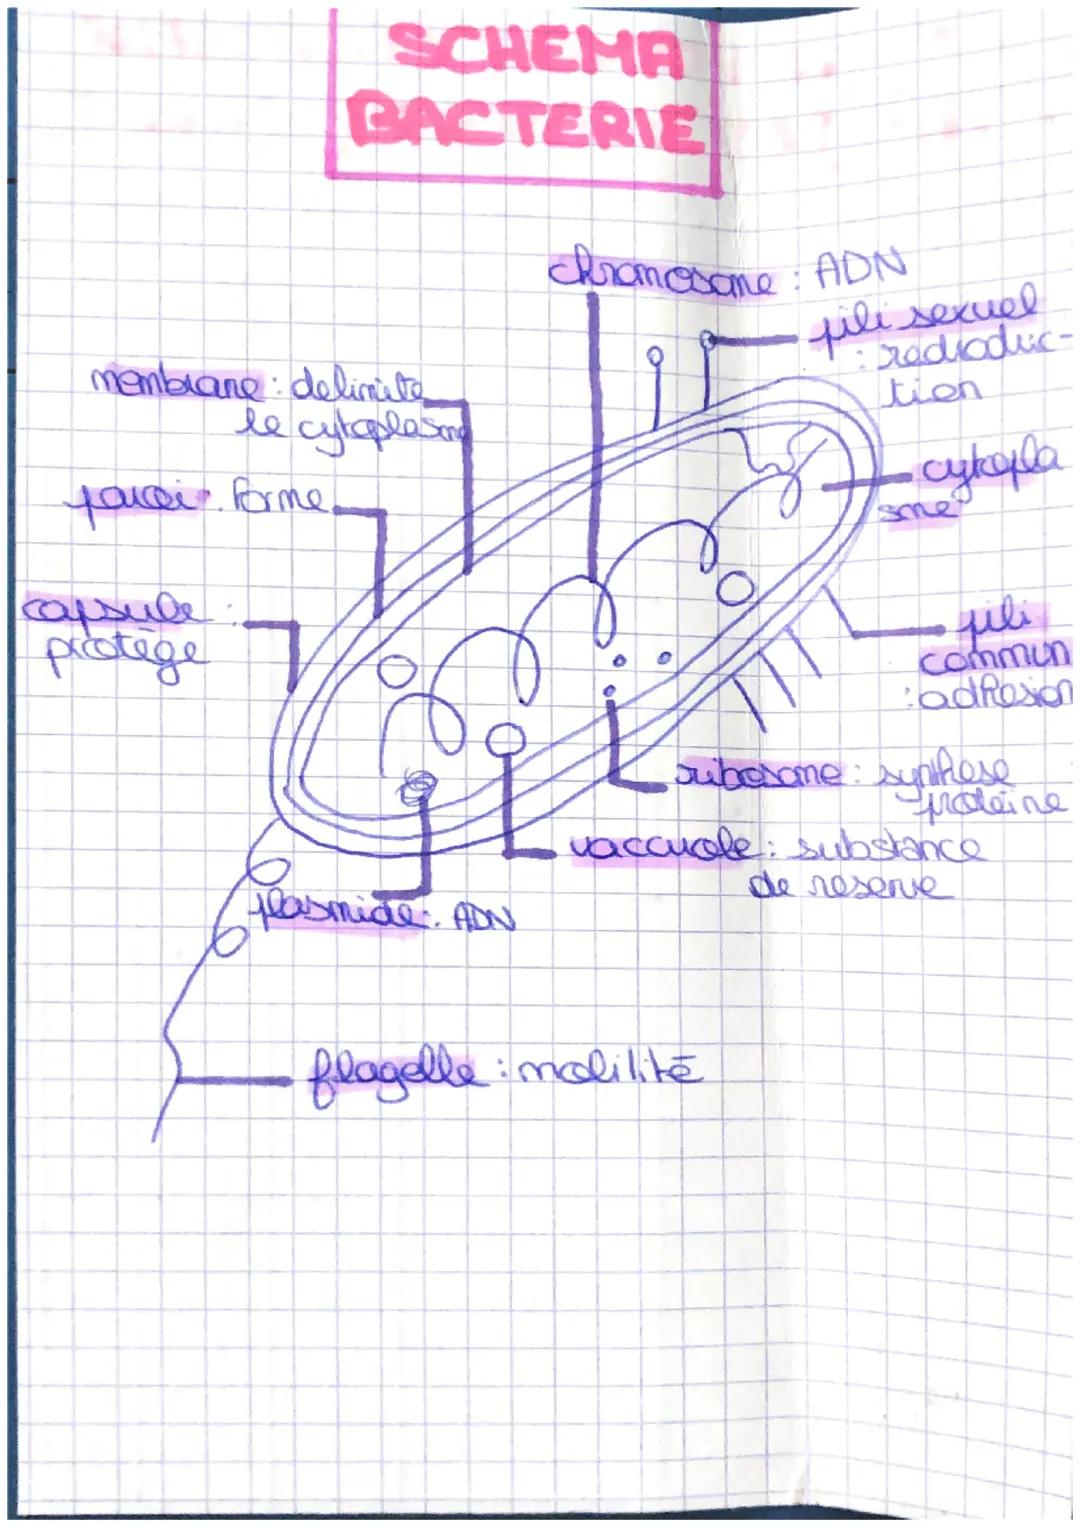 SCHEMA
BACTERIE
chromosome : ADN
pili sexuel
: reproduc-
tion
membrane : delimite
le cytoplasme
paroi : forme
cytopla
sme
capsule :
protège
pili
commun
: adhesion
ribosome : synthese
protéine
vaccuole : substance
de reserve
plasmide : ADN
flagelle : mobilité